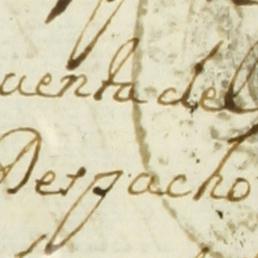 uenta del
Despacho